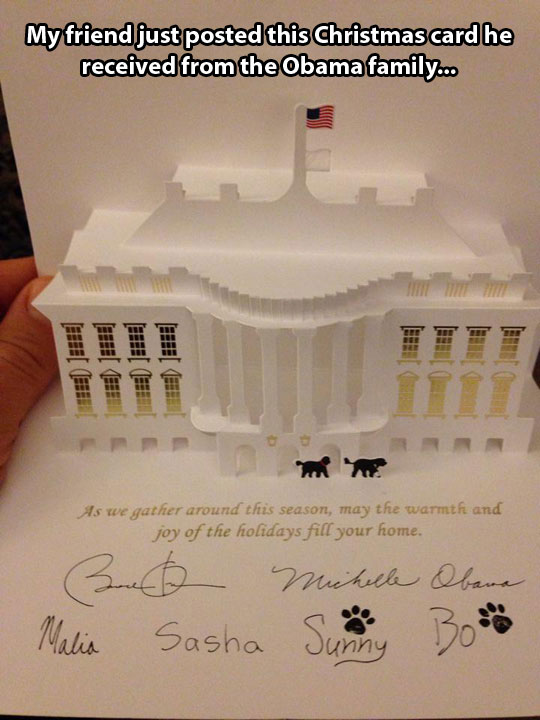 My friend just posted this Christmas card he
received from the Obama family...
As we gather around this season, may the warmth and
joy of the holidays fill your home.
Michelle Obama
Malia Sasha Sunny Bo